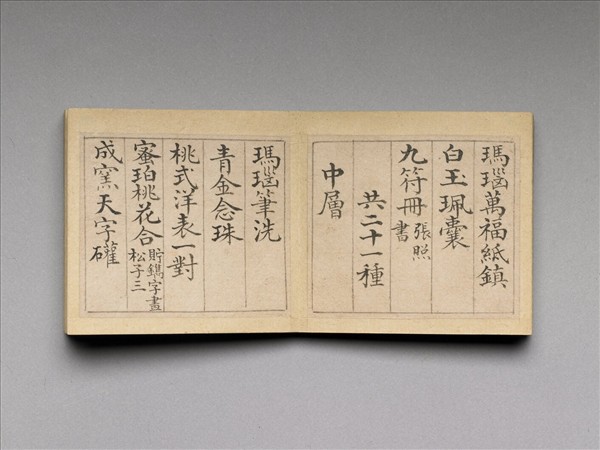 瑪瑙萬福紙鎮
白玉珮囊
九符冊 張照書
共二十一種
中層
瑪瑙筆洗
青金念珠
桃式洋表一對
蜜珀桃花合 貯鐫字畫松子三
成窯天字罐